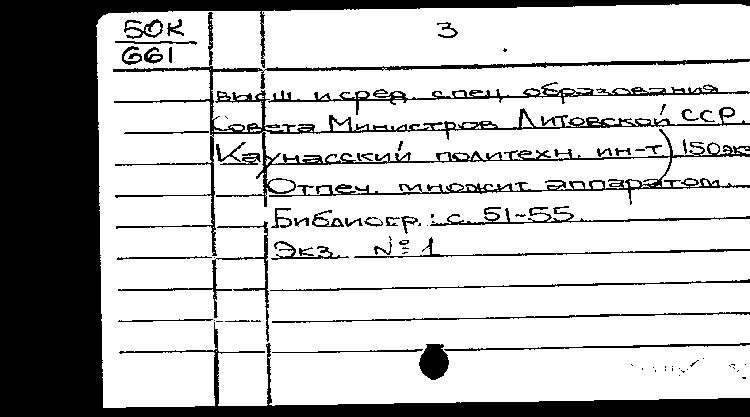 50К
661
3
высш. и сред. спец. образования
Совета Министров Литовской ССР.
Каунасский политехн. ин-т) 150экз
Отпеч. множит. аппаратом.
Библиогр.: с. 51-55.
Экз. № 1